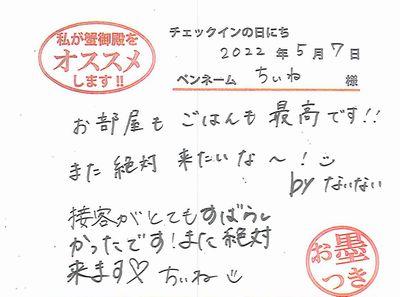 私が蟹御殿を
オススメ
します!!
チェックインの日にち
2022 年 5 月 7 日
ペンネーム ちぃね 様
お部屋も ごはんも 最高です!!
また 絶対 来たいな〜!
by ないない
接客がとてもすばらし
かったです!また絶対
来ます♡ ちぃね
お墨
つき